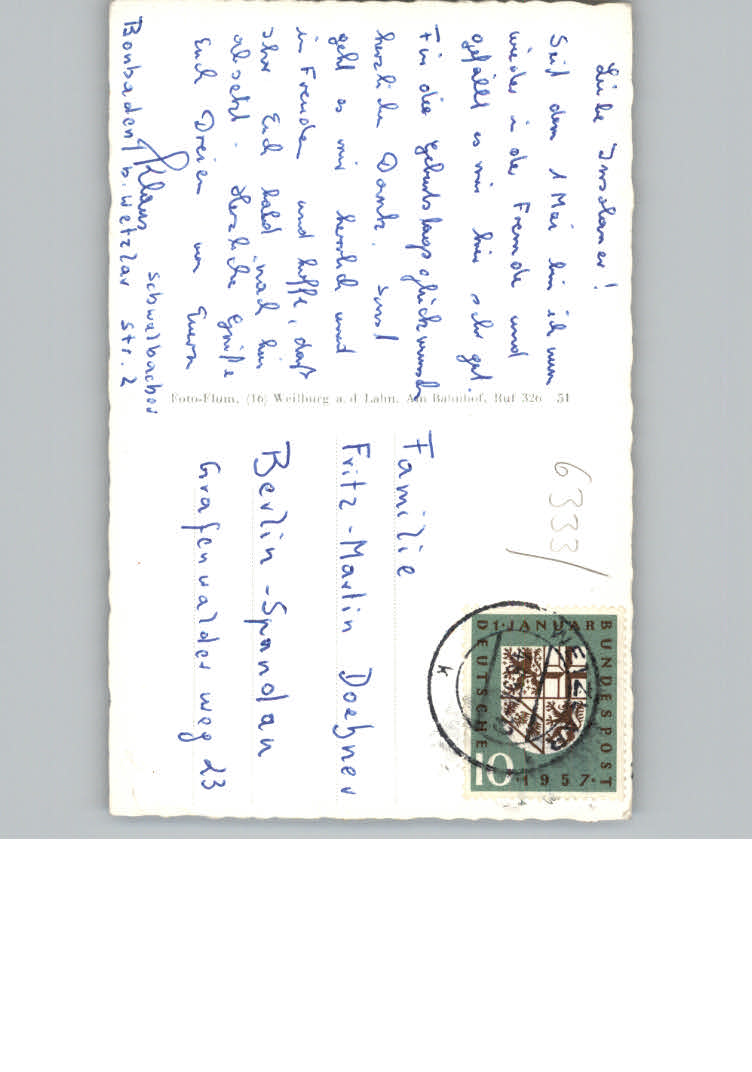 Liebe Insulaner!
Seit dem 1 Mai bin ich nun
wieder in der Fremde und
gefällt es mir hier sehr gut.
Für die Geburtstagsglückwünsche
herzlichen Dank. Sonst
geht es mir herrlich und
in Freuden und hoffe, daß
Ihr Euch bald nach hier
absetzt. Herzliche Grüße
Euch Dreien von Eurem
Klaus
Schwalbacher
Bonbaden b. Wetzlar Str. 2
Foto-Flum, (16) Weilburg a. d. Lahn, Am Bahnhof, Ruf 326 51
6333/
Familie
Fritz-Martin Doebner
Berlin-Spandau
Grafenwalder weg 23
1·JANUAR
BUNDESPOST
DEUTSCHE
10
·1957·
WETZLAR
k